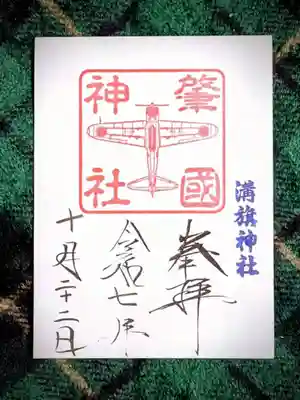 肇國
神社
溝旗神社
奉拝
令和七年
十月二十二日